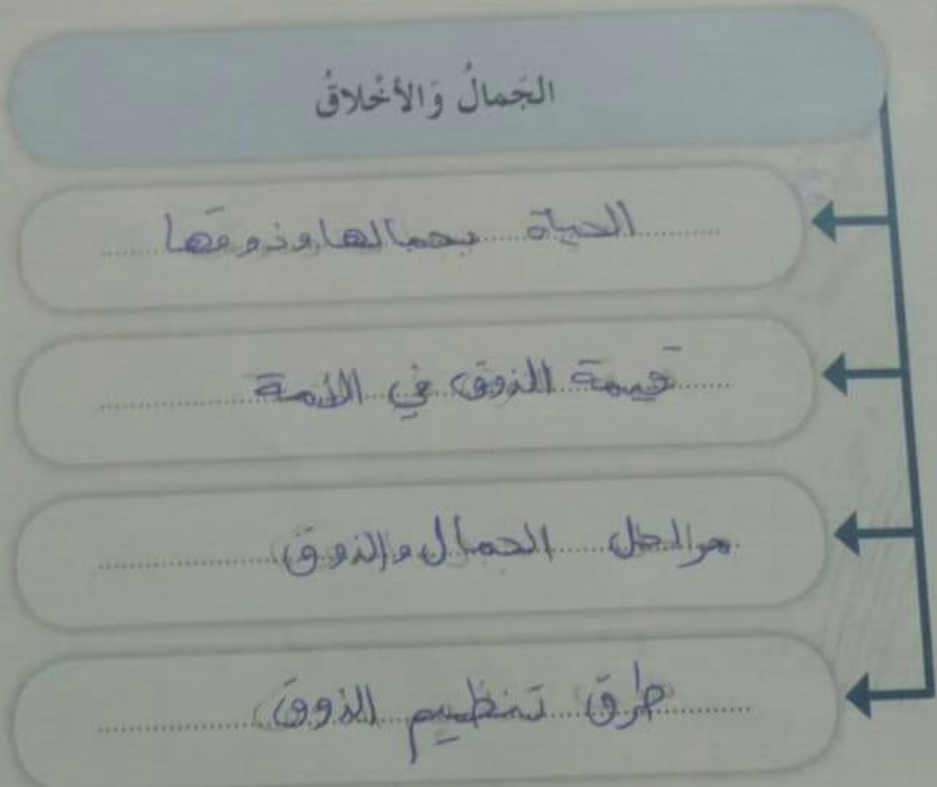 الجَمالُ وَالأَخْلاقُ
الحياة بجمالها وذوقها
قيمة الذوق في الأمة
مراحل الجمال والذوق
طرق تنظيم الذوق